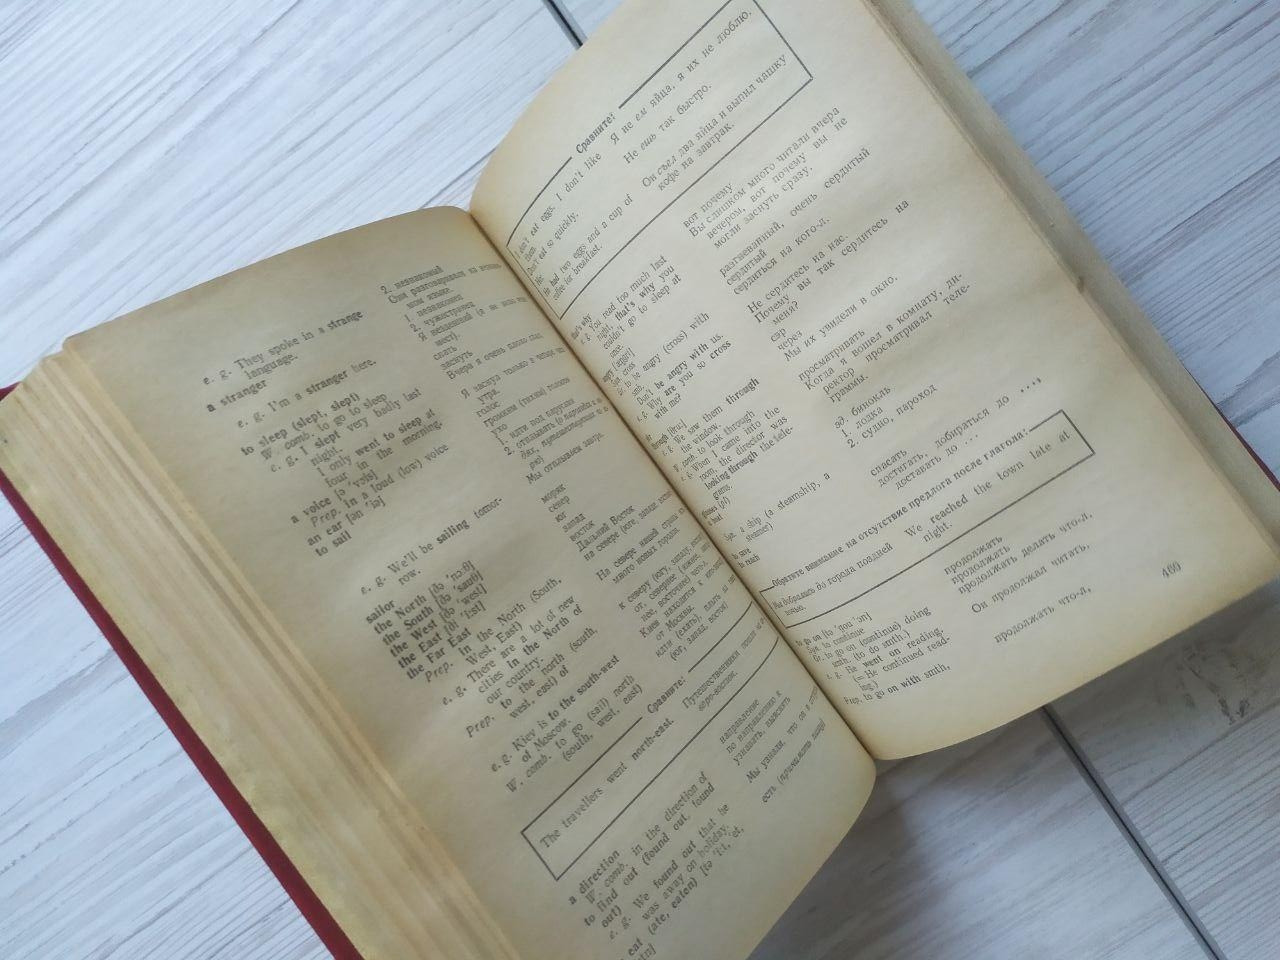 e. g. They spoke in a strange language.
2. незнакомый
Они разговаривали на
a stranger
1. незнакомец
2. чужестранец
e. g. I'm a stranger here.
to sleep (slept, slept)
спать
W. comb. to go to sleep
заснуть
e. g. I slept very badly last
night.
Вчера я очень плохо спал.
I only went to sleep at
four in the morning.
Я заснул только в четыре
утра.
a voice
голос
Prep. in a loud (low) voice
громким (тихим) голосом
an ear
ухо
to sail
1. идти под парусами
2. отплывать
e. g. We'll be sailing tomor-
row.
Мы отплываем завтра.
sailor
моряк
the North
север
the South
юг
the West
запад
the East
восток
the Far East
Дальний Восток
Prep. in the North (South,
West, East)
на севере (юге, западе,
e. g. There are a lot of new
cities in the North of
our country.
На севере нашей страны
много новых городов.
Prep. to the north (south,
west, east) of
к северу (югу, западу,
e. g. Kiev is to the south-west
of Moscow.
Киев находится к
от Москвы.
W. comb. to go (sail) north
(south, west, east)
идти (ехать), плыть
(юг, запад, восток)
Сравните:
The travellers went north-east.
Путешественники
a direction
направление
W. comb. in the direction of
по направлению к
to find out (found out, found
out)
узнавать, выяснять
e. g. We found out that he
was away on holiday.
Мы узнали, что он в
eat (ate, eaten)
есть (принимать пищу)
Сравните:
I don't eat eggs, I don't like
them.
Я не ем яйца, я их не люблю.
Don't eat so quickly.
Не ешь так быстро.
He had two eggs and a cup of
coffee for breakfast.
Он съел два яйца и выпил чашку
кофе на завтрак.
that's why
вот почему
e. g. You read too much last
night, that's why you
couldn't go to sleep at
once.
Вы слишком много читали вчера
вечером, вот почему вы не
могли заснуть сразу.
angry
разгневанный, очень сердитый
Syn. cross
сердитый
Gr. to be angry (cross) with
smb.
сердиться на кого-л.
Don't be angry with us.
Не сердитесь на нас.
e. g. Why are you so cross
with me?
Почему вы так сердитесь на
меня?
sir
сэр
through
через
e. g. We saw them through
the window.
Мы их увидели в окно.
W. comb. to look through
просматривать
e. g. When I came into the
room, the director was
looking through the tele-
grams.
Когда я вошел в комнату, ди-
ректор просматривал теле-
граммы.
glasses (pl)
зд. бинокль
a boat
1. лодка
2. судно, пароход
Syn. a ship (a steamship, a
steamer)
to save
спасать
to reach
достигать, добираться до ...,
доставать до ...
Обратите внимание на отсутствие предлога после глагола:
Мы добрались до города поздней
ночью.
We reached the town late at
night.
to go on
продолжать
Syn. to continue
продолжать
Gr. to go on (continue) doing
smth. (to do smth.)
продолжать делать что-л.
e. g. He went on reading.
(= He continued read-
ing.)
Он продолжал читать.
Prep. to go on with smth.
продолжать что-л.
469